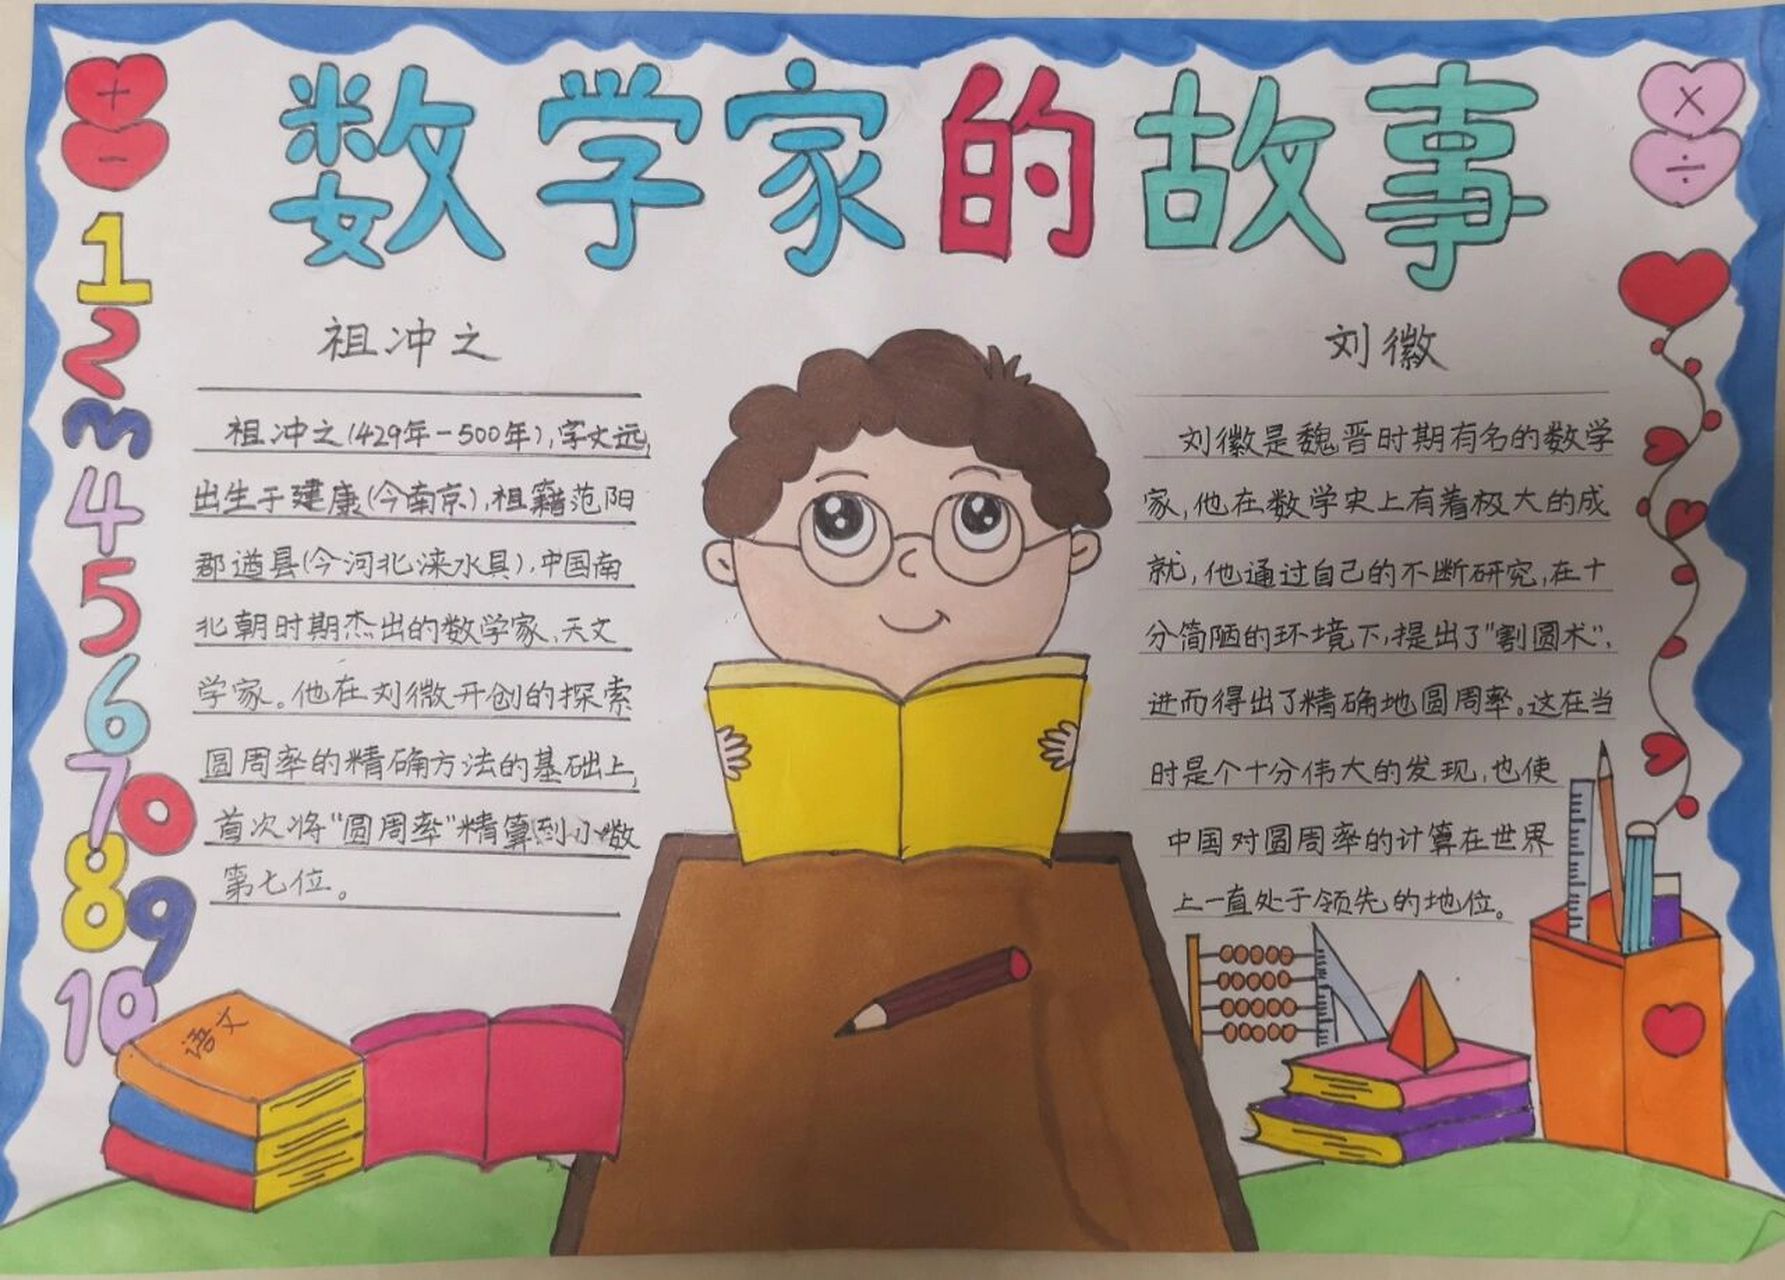 数学家的故事
+
-
×
÷
1
2
3
4
5
6
7
0
8
9
10
祖冲之
祖冲之(429年-500年),字文远,
出生于建康(今南京),祖籍范阳
郡遒县(今河北涞水具),中国南
北朝时期杰出的数学家、天文
学家。他在刘微开创的探索
圆周率的精确方法的基础上,
首次将"圆周率"精算到小数
第七位。
刘徽
刘徽是魏晋时期有名的数学
家,他在数学史上有着极大的成
就,他通过自己的不断研究,在十
分简陋的环境下,提出了"割圆术",
进而得出了精确地圆周率。这在当
时是个十分伟大的发现,也使
中国对圆周率的计算在世界
上一直处于领先的地位。
语文